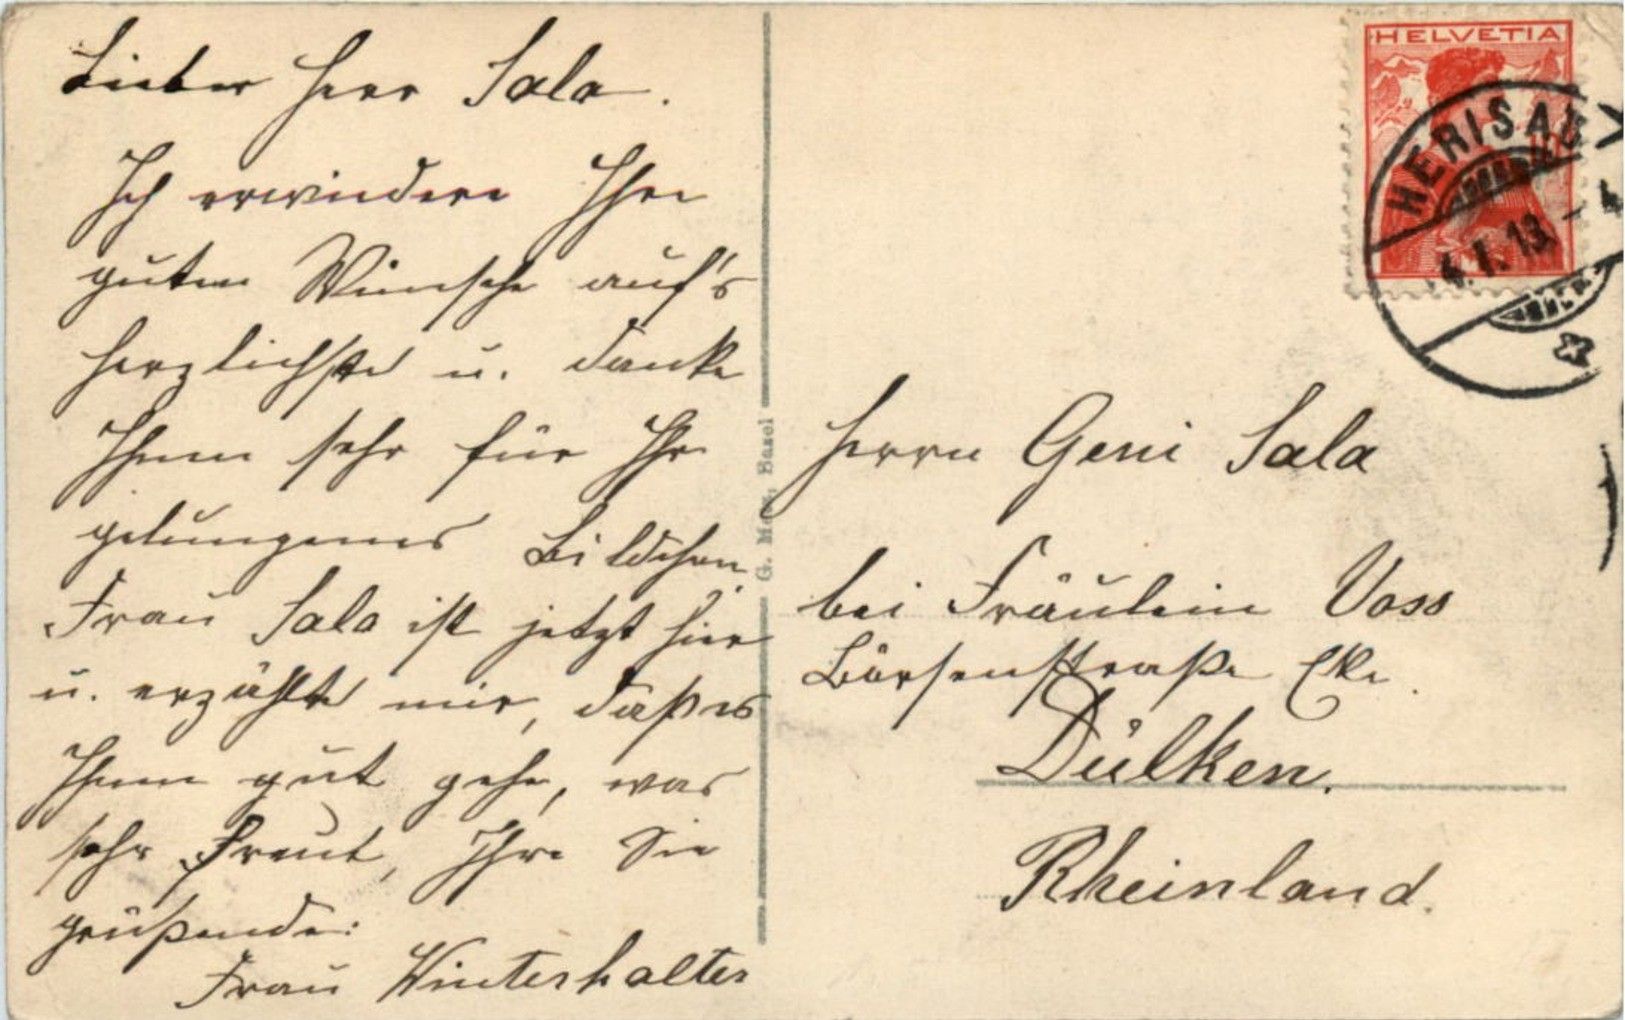 Lieber Herr Sala.
Ich erwiedere Ihre
guten Wünsche auf's
herzlichste u. danke
Ihnen sehr für Ihr
gelungenes Bildchen.
Frau Sala ist jetzt hier
u. erzählte mir, daß es
Ihnen gut gehe, was
sehr freut, Ihre Sie
grüßende:
Frau Winterhalter
G. Basel
HELVETIA
HERISAU
4.I.13.-4
Herrn Geni Sala
bei Fräulein Voss
Börsenstraße Eke.
Dülken.
Rheinland.